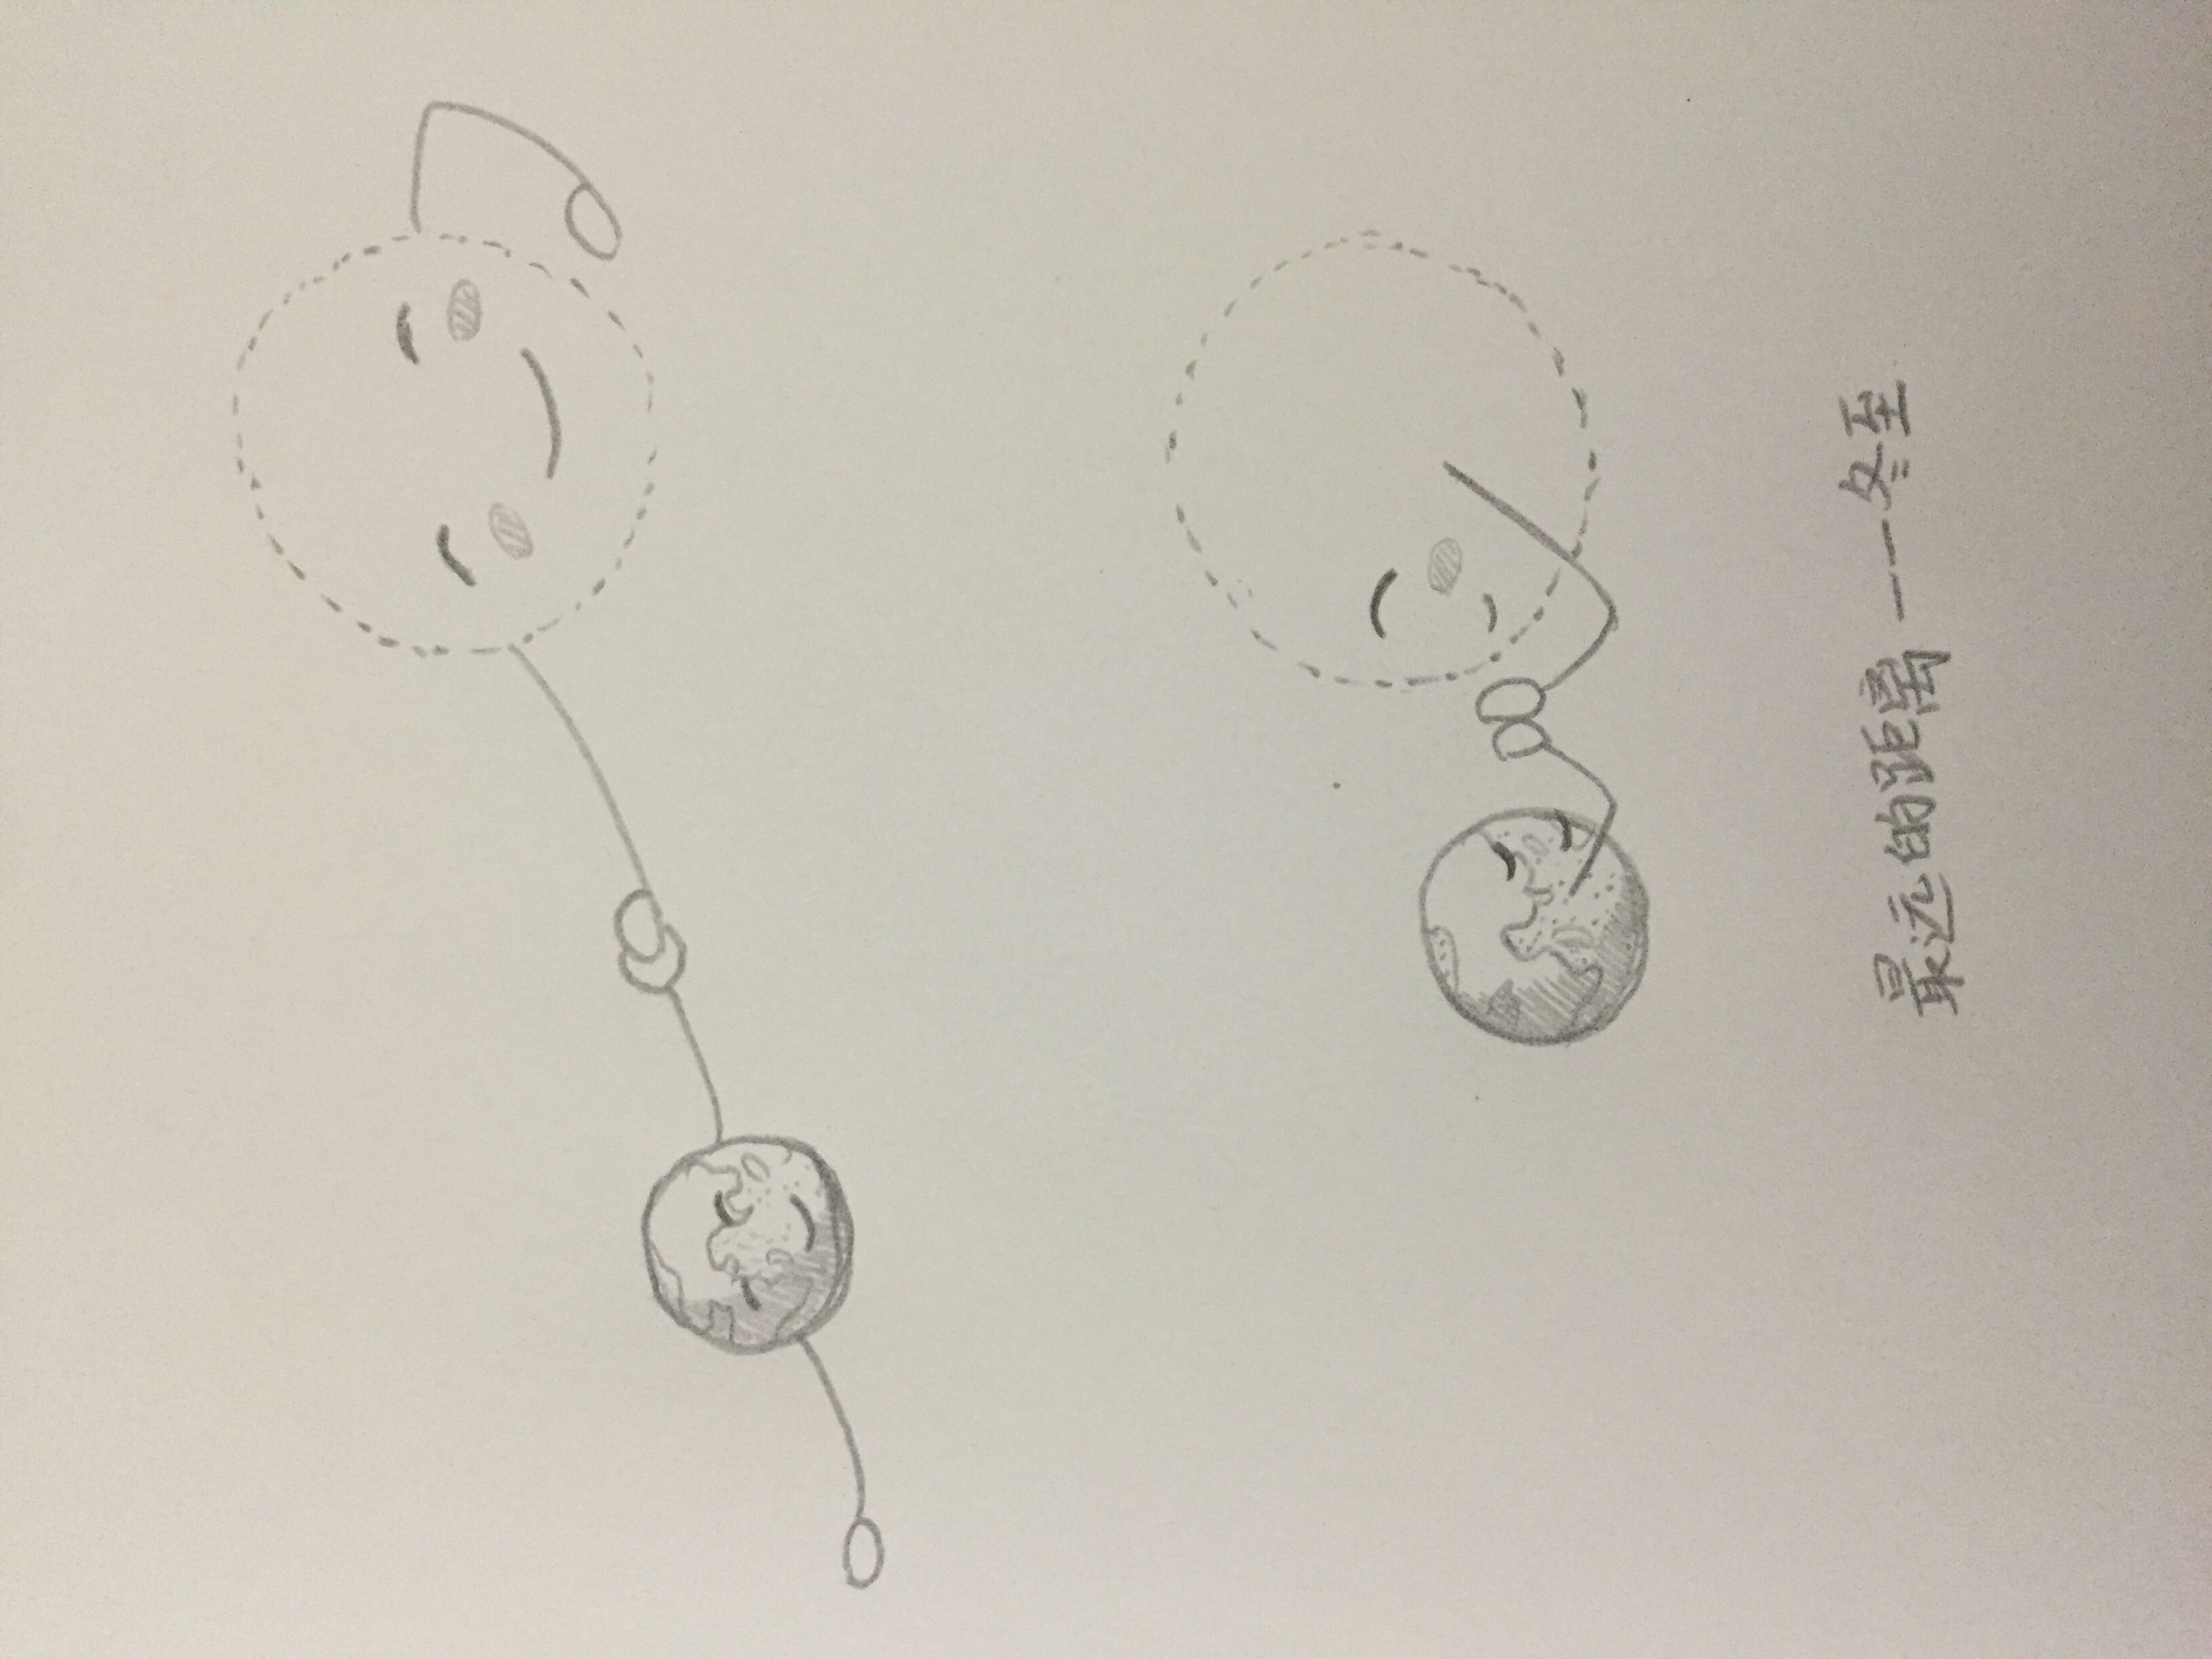 最远的距离——冬至